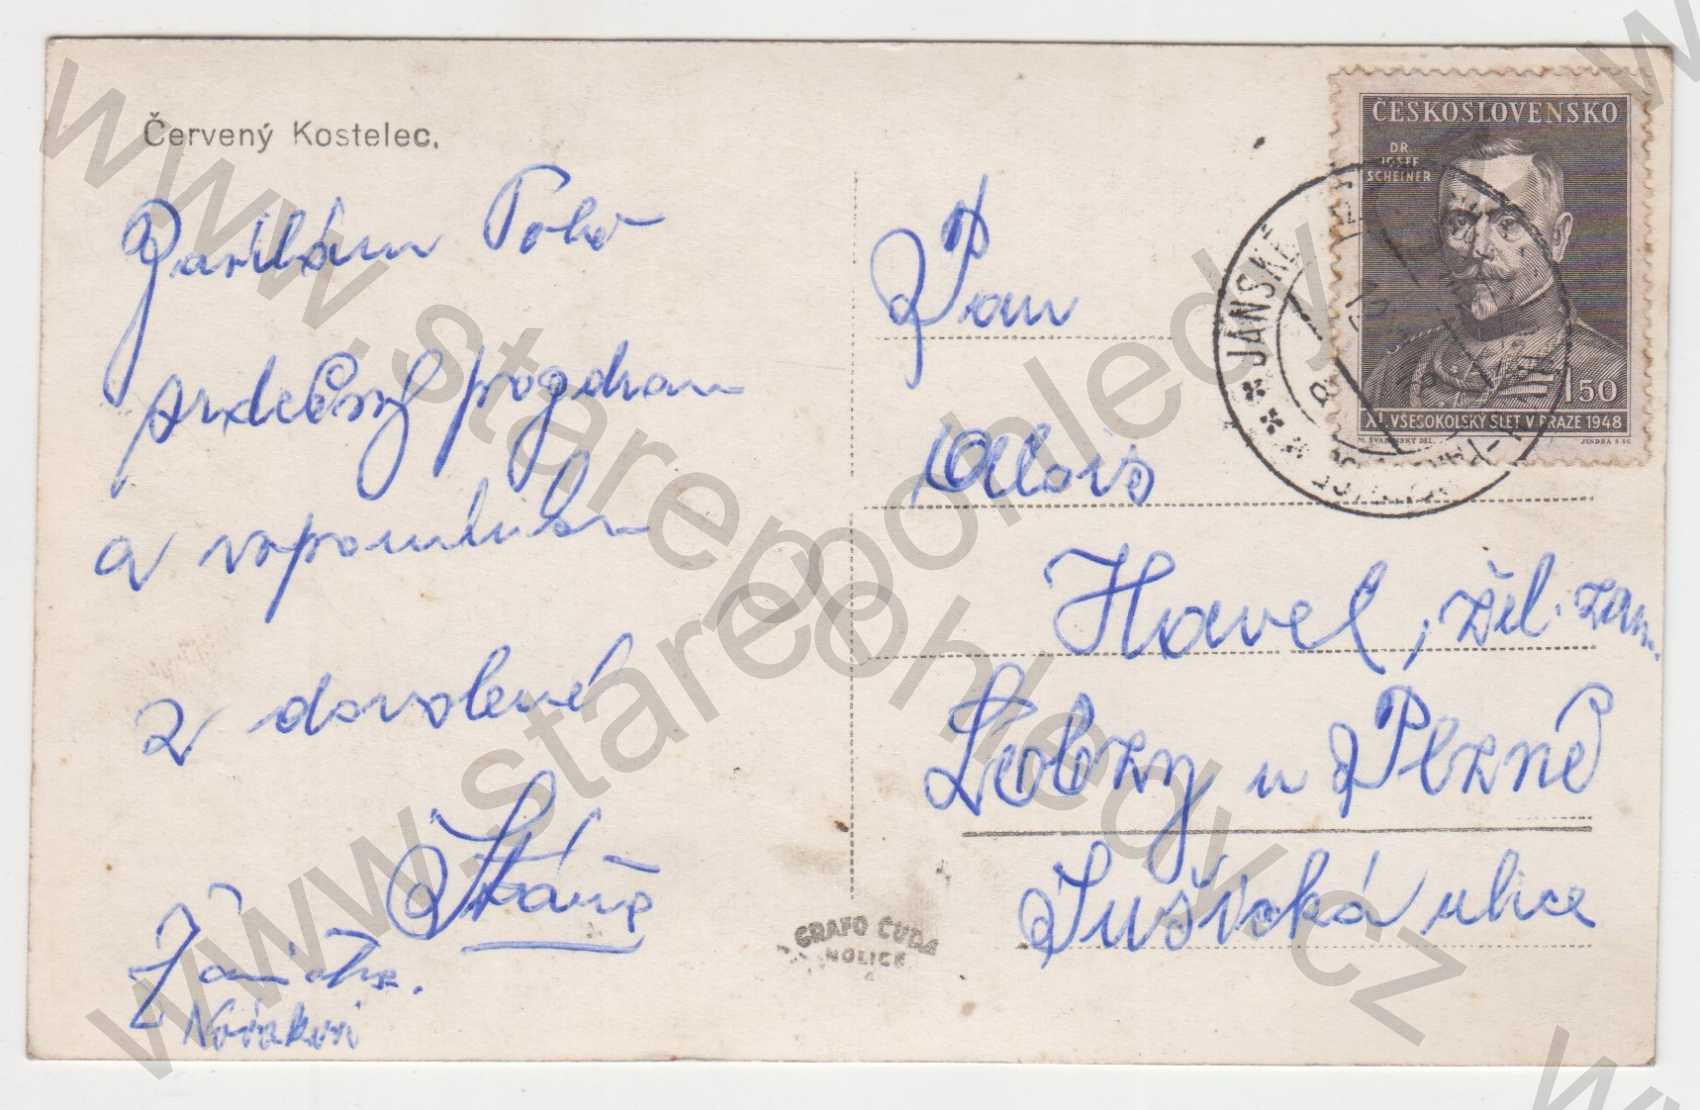 Červený Kostelec.
Zasílám Toho
srdečný pozdrav
a vzpomínku
z dovolené
Stáňa
Novákovi
Pan
Alois
Havel, žel. zam.
Lobzy u Plzně
Sušická ulice
GRAFO ČUDA
HOLICE
ČESKOSLOVENSKO
DR.
JOSEF
SCHEINER
1'50
XI. VŠESOKOLSKÝ SLET V PRAZE 1948
JINDRA SC.
JÁNSKÉ
www.starepohledy.cz
www.starepohledy.cz